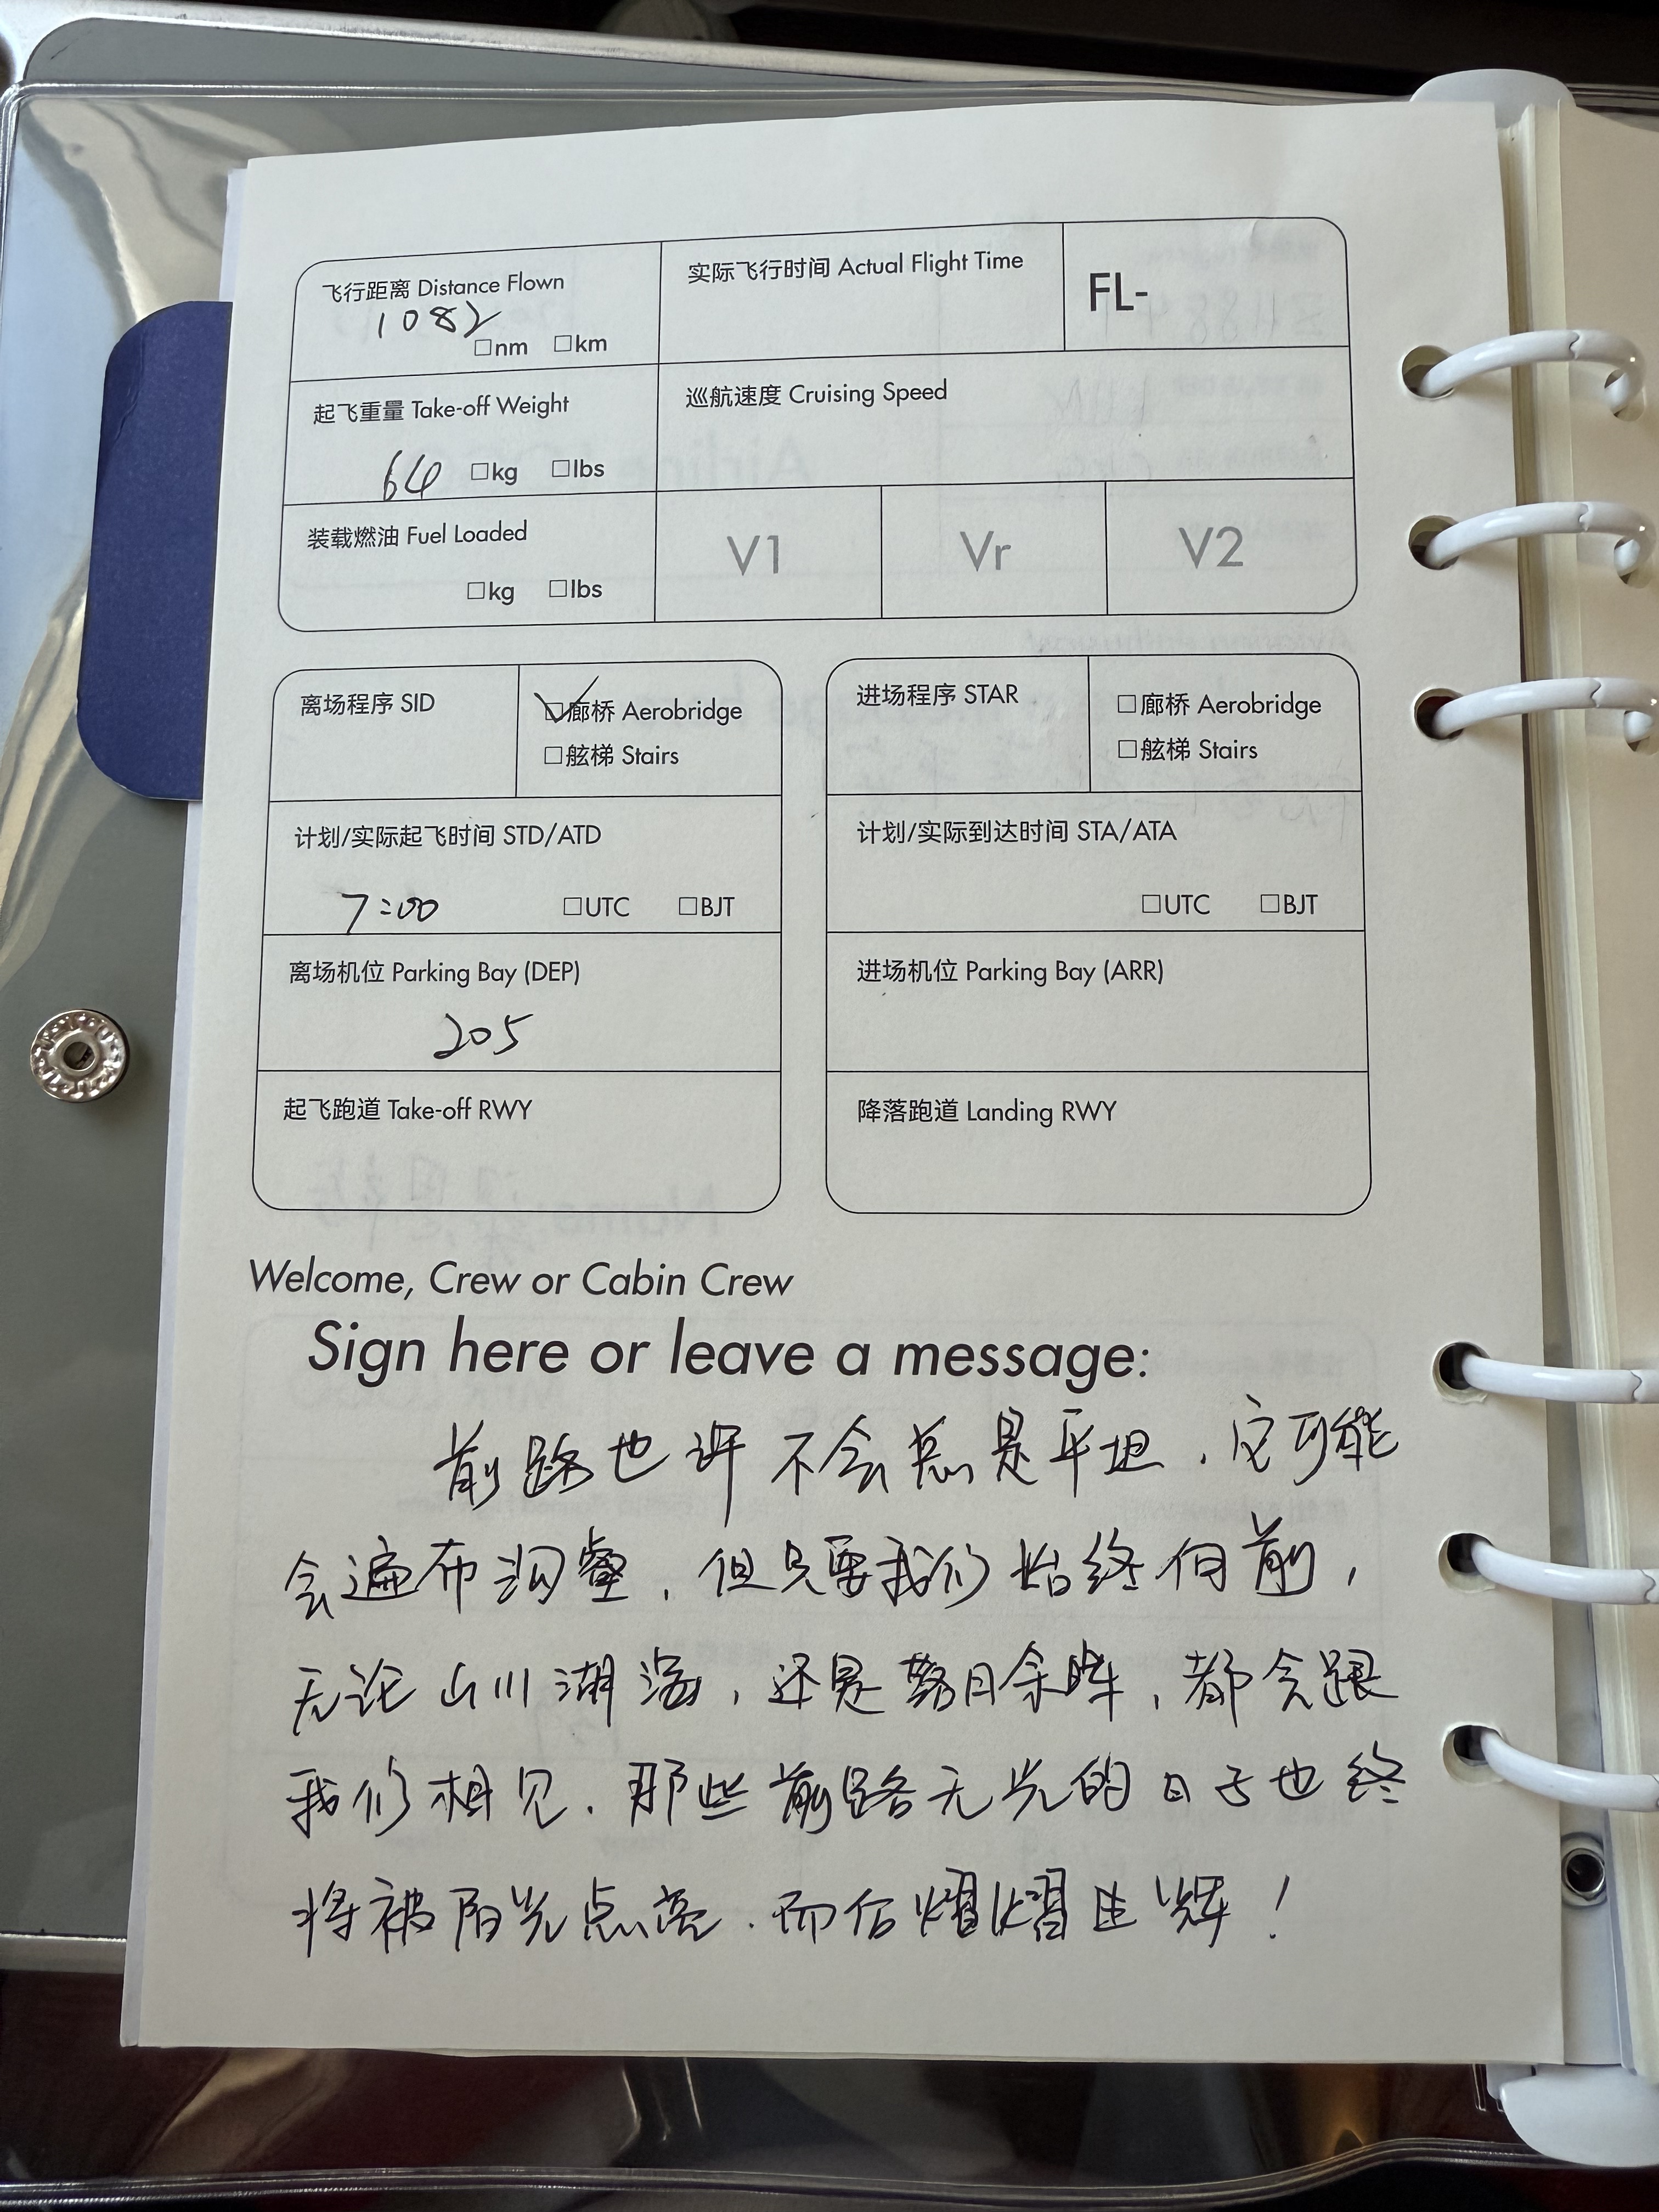 飞行距离 Distance Flown
1082
□nm □km
实际飞行时间 Actual Flight Time
FL-
起飞重量 Take-off Weight
64 □kg □lbs
巡航速度 Cruising Speed
装载燃油 Fuel Loaded
□kg □lbs
V1
Vr
V2
离场程序 SID
☑廊桥 Aerobridge
□舷梯 Stairs
计划/实际起飞时间 STD/ATD
7:00 □UTC □BJT
离场机位 Parking Bay (DEP)
205
起飞跑道 Take-off RWY
进场程序 STAR
□廊桥 Aerobridge
□舷梯 Stairs
计划/实际到达时间 STA/ATA
□UTC □BJT
进场机位 Parking Bay (ARR)
降落跑道 Landing RWY
Welcome, Crew or Cabin Crew
Sign here or leave a message:
前路也许不会总是平坦，它可能
会遍布沟壑，但只要我们始终向前，
无论山川湖海，还是朝月余晖，都会跟
我们相见。那些前路无光的日子也终
将被阳光点亮，而后熠熠生辉！